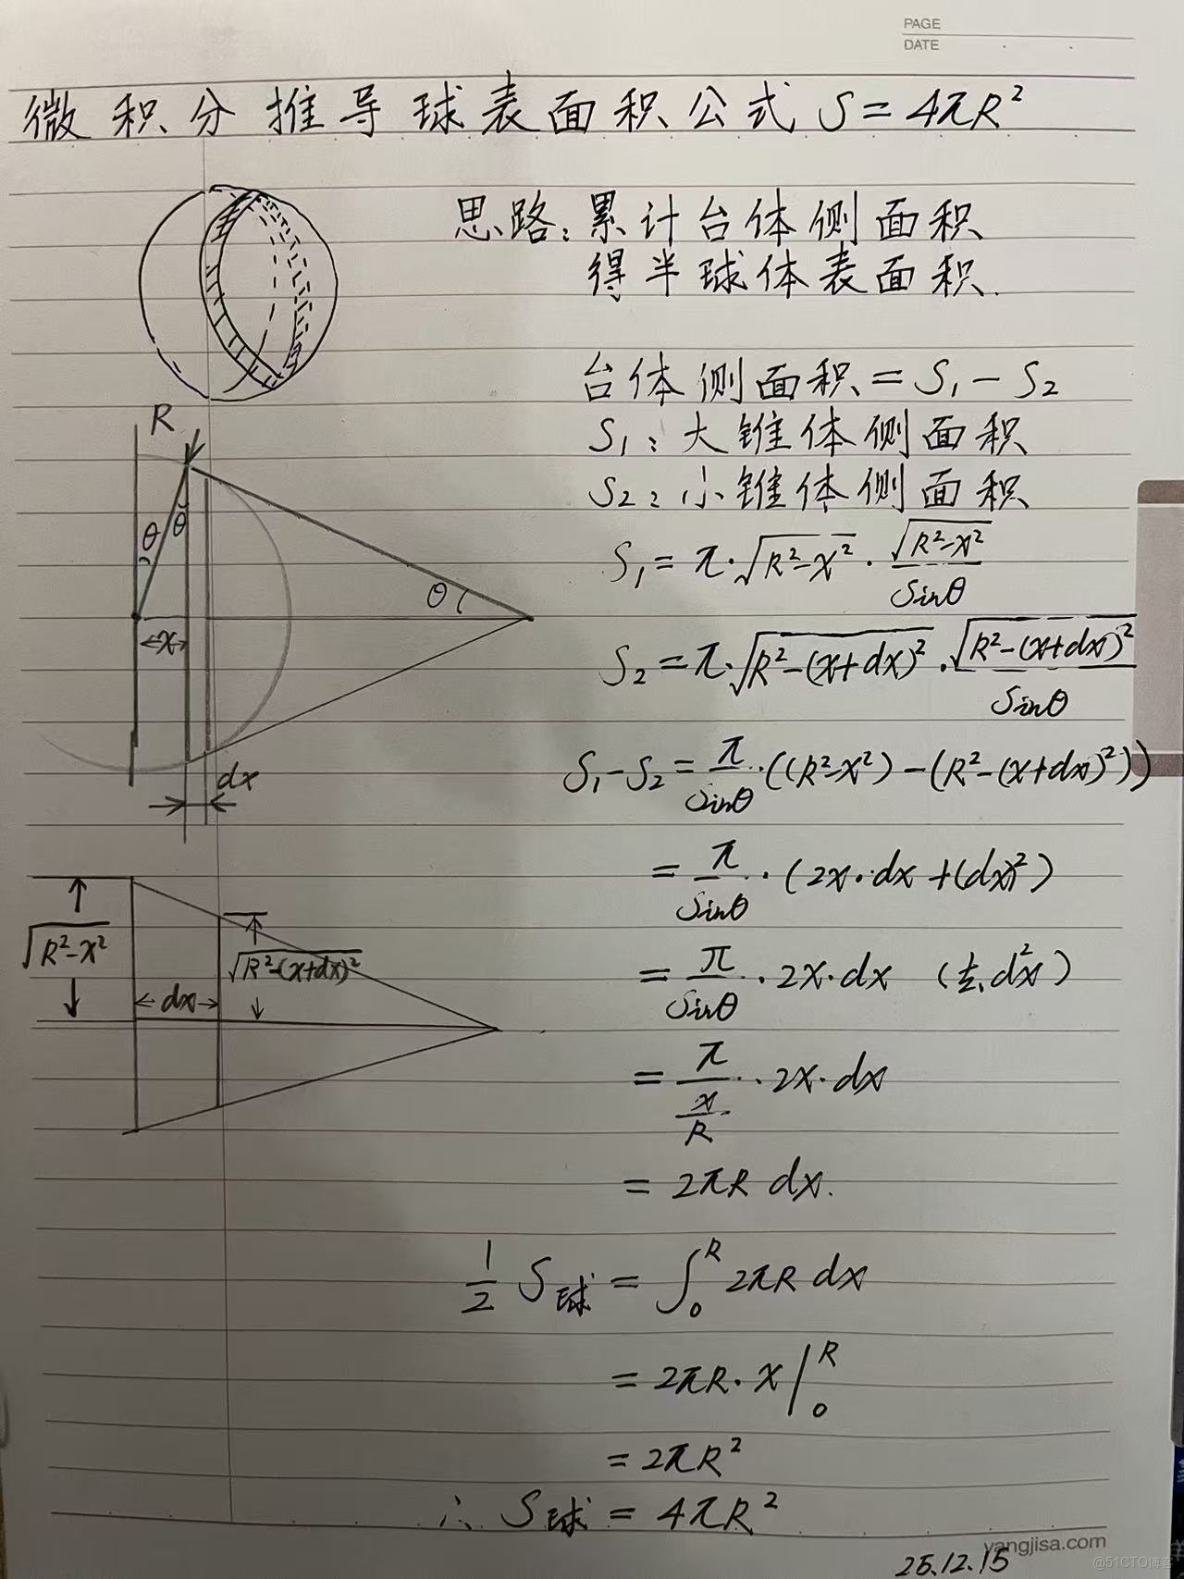 PAGE
DATE
微积分推导球表面积公式 S=4πR²
思路:累计台体侧面积
得半球体表面积.
台体侧面积=S₁-S₂
S₁:大锥体侧面积
S₂:小锥体侧面积
R
θ θ
θ
x
dx
S₁=π·√(R²-x²)·√(R²-x²)/Sinθ
S₂=π·√(R²-(x+dx)²)·√(R²-(x+dx)²)/Sinθ
S₁-S₂=π/Sinθ·((R²-x²)-(R²-(x+dx)²))
=π/Sinθ·(2x·dx+(dx)²)
=π/Sinθ·2x·dx (去d²x)
=π/(x/R)·2x·dx
=2πR dx.
√(R²-x²)
√(R²-(x+dx)²)
dx
1/2 S球=∫₀ᴿ 2πR dx
=2πR·x|₀ᴿ
=2πR²
∴ S球=4πR²
yangjisa.com
25.12.15
@51CTO博客